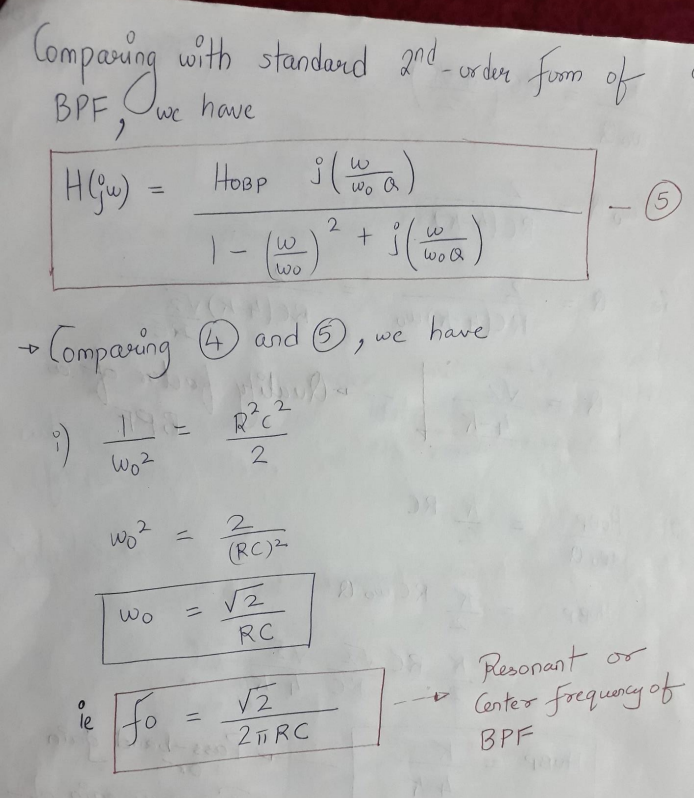 Comparing with standard 2nd-order form of
BPF, we have
H(jω) = HOBP j(ω/ω₀Q) / 1 - (ω/ω₀)² + j(ω/ω₀Q) — ⑤
→ Comparing ④ and ⑤, we have
i) 1/ω₀² = R²C²/2
ω₀² = 2/(RC)²
ω₀ = √2/RC
ie f₀ = √2/2πRC ---→ Resonant or
Center frequency of
BPF